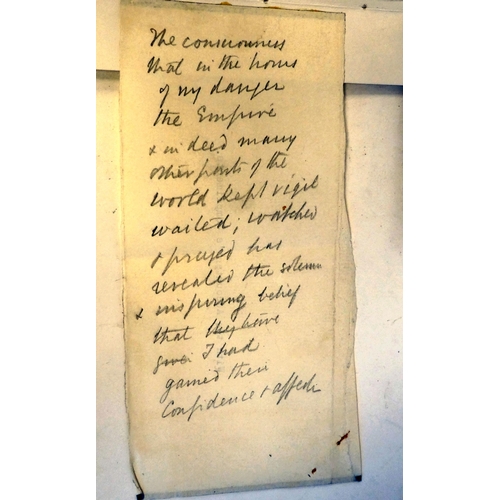 The consciousness
that in the hours
of my danger
the Empire
& indeed many
other parts of the
world kept vigil
waited, watched
& prayed has
revealed the solemn
& inspiring belief
that they have
given I had
gained their
Confidence & affection